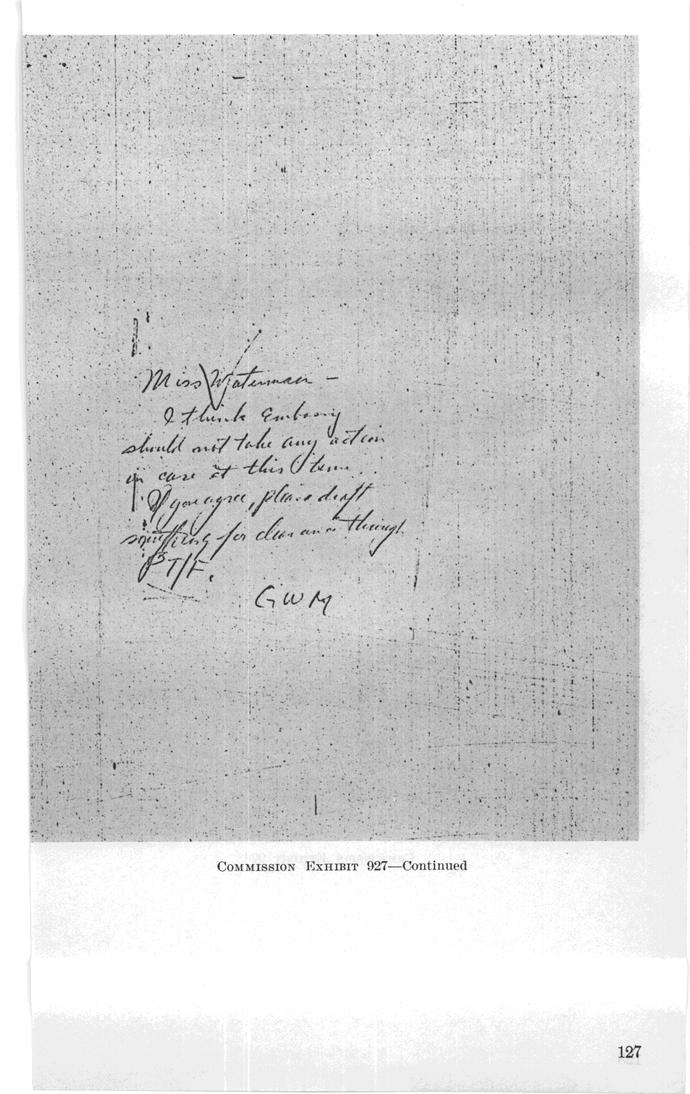 Miss Waterman –
I think Embassy
should not take any action
in case at this time.
If you agree, please draft
something for clearance through
PT/F.
GWM
COMMISSION EXHIBIT 927—Continued
127